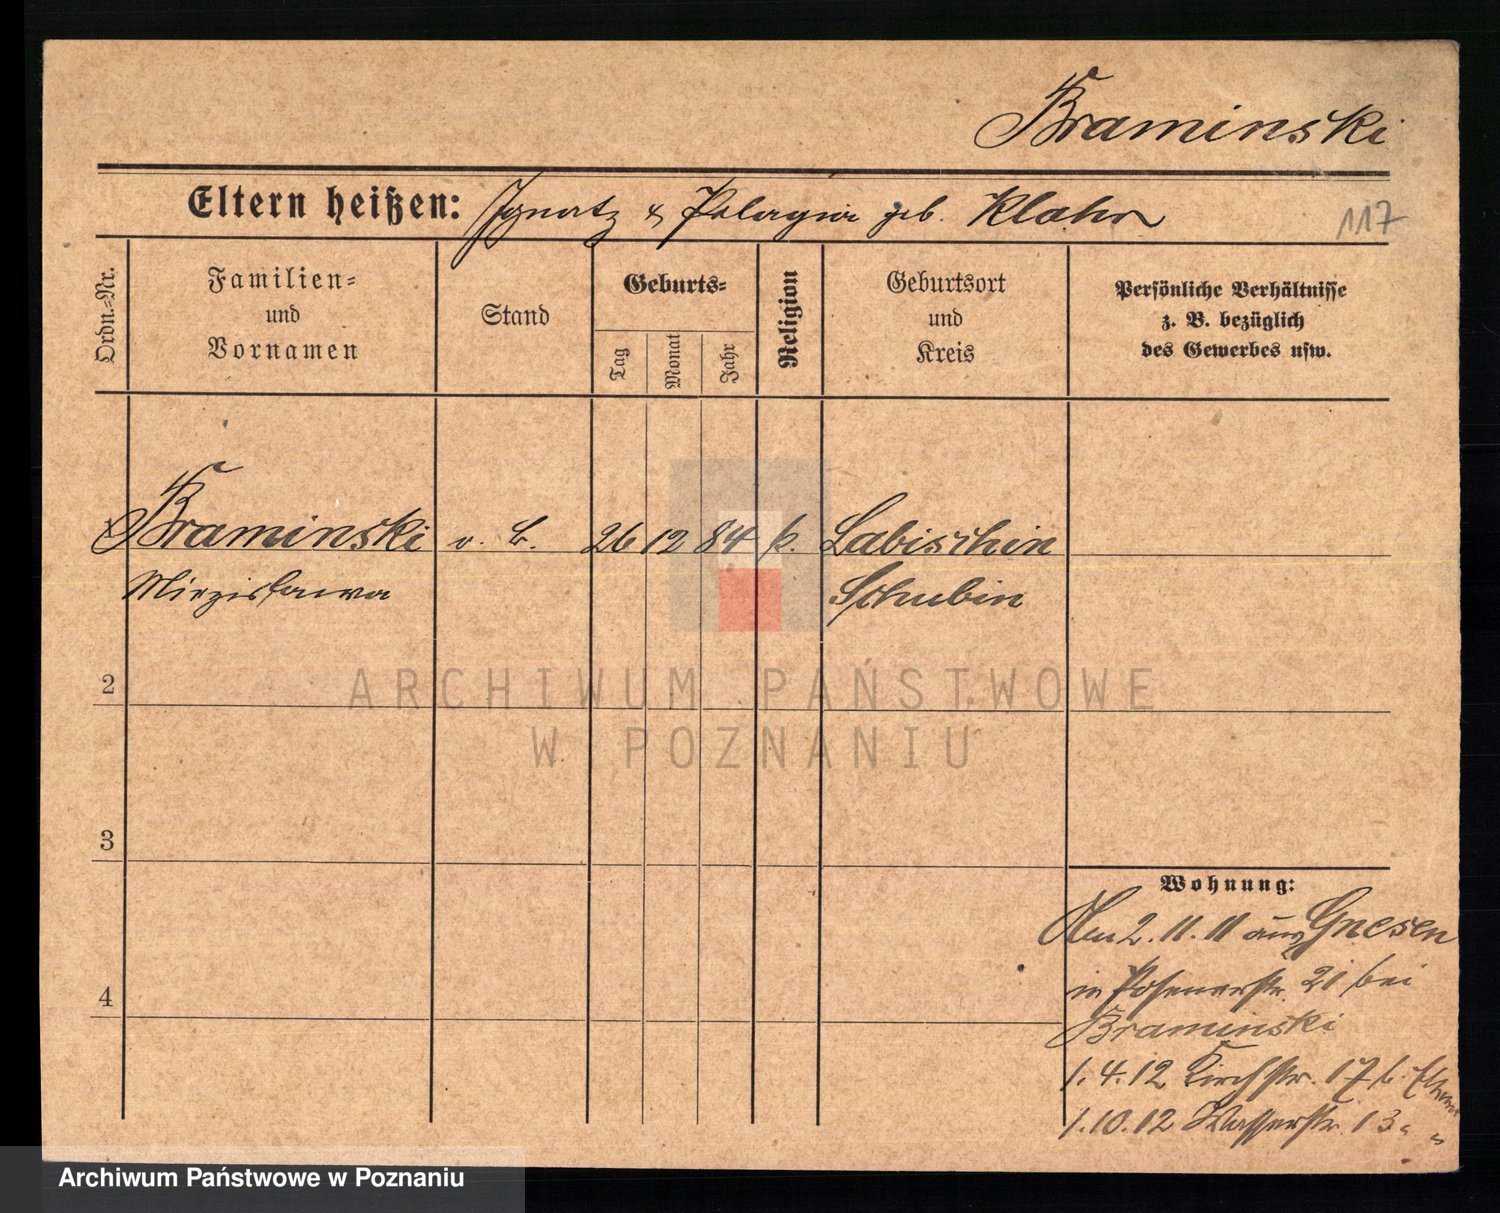 Braminski
Eltern heißen: Ignatz & Pelagia geb. Klahn
117
Ordn.-Nr.
Familien-
und
Vornamen
Stand
Geburts-
Tag
Monat
Jahr
Religion
Geburtsort
und
Kreis
Persönliche Verhältnisse
z. B. bezüglich
des Gewerbes usw.
1 Braminski o. B. 26 12 84 k. Labischin
Miezislawa Schubin
2
3
4
Wohnung:
2. 11. 11 aus Gnesen
in Posenerstr. 21 bei
Braminski
1. 4. 12 Kirchstr. 17 b. Eltern
1. 10. 12 Wasserstr. 13 " "
ARCHIWUM PAŃSTWOWE
W POZNANIU
Archiwum Państwowe w Poznaniu